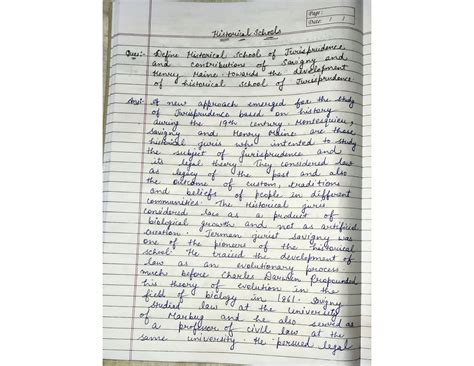 Page:
Date: / /
Historical Schools
Ques:- Define Historical School of Jurisprudence
and contributions of Savigny and
Henry Maine towards the development
of historical School of Jurisprudence
Ans:- A new approach emerged for the study
of Jurisprudence based on history
during the 19th century Montesquieu,
Savigny and Henry Maine are those
historical juris who intended to study
the subject of jurisprudence and
its legal theory They considered law
as legacy of the past and also
the outcome of custom, traditions
and beliefs of people in different
communities. The Historical juris
considered law as a product of
biological growth and not as artificial
creation. German jurist Savigny was
one of the pioners of the historical
school. He traised the development of
law as an evolutionary process
much before Charles Darwin Propounded
his theory of evolution in the
field of biology in 1961. Savigny
studied law at the University
of Marbug and he also served as
a profesor of civil law at the
same university. He persued legal